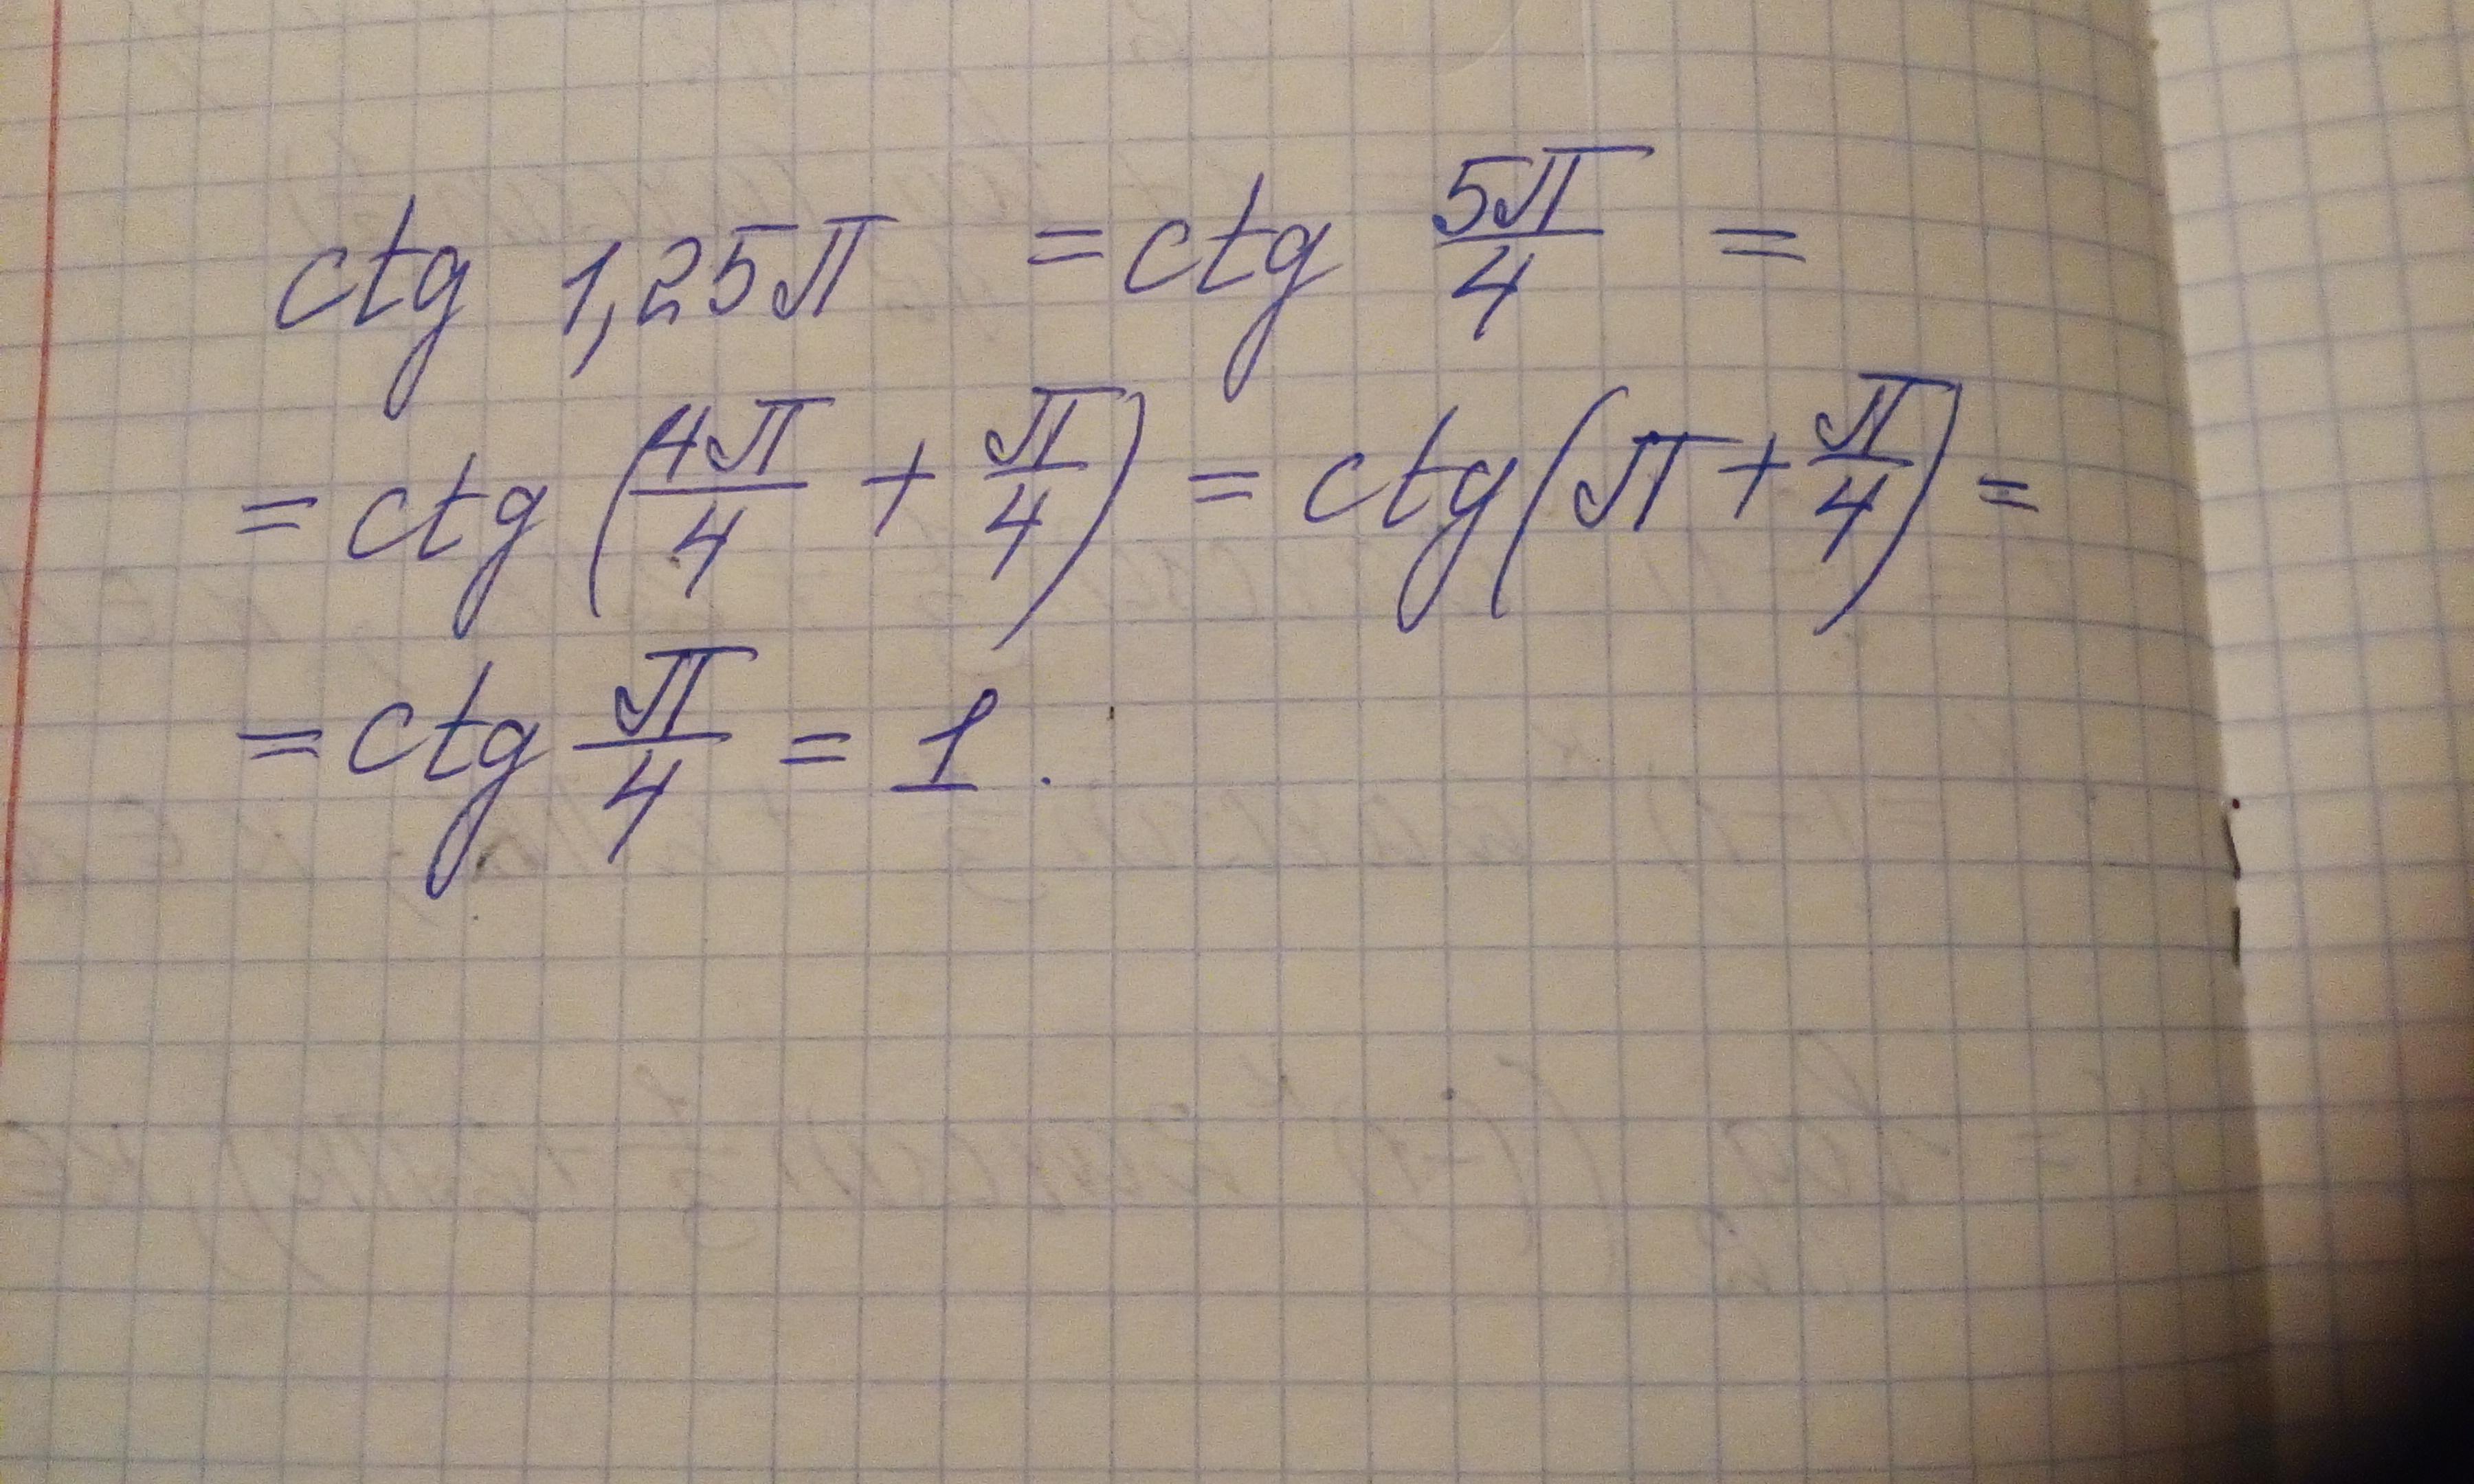 ctg 1,25π = ctg 5π/4 =
= ctg (4π/4 + π/4) = ctg(π + π/4) =
= ctg π/4 = 1.